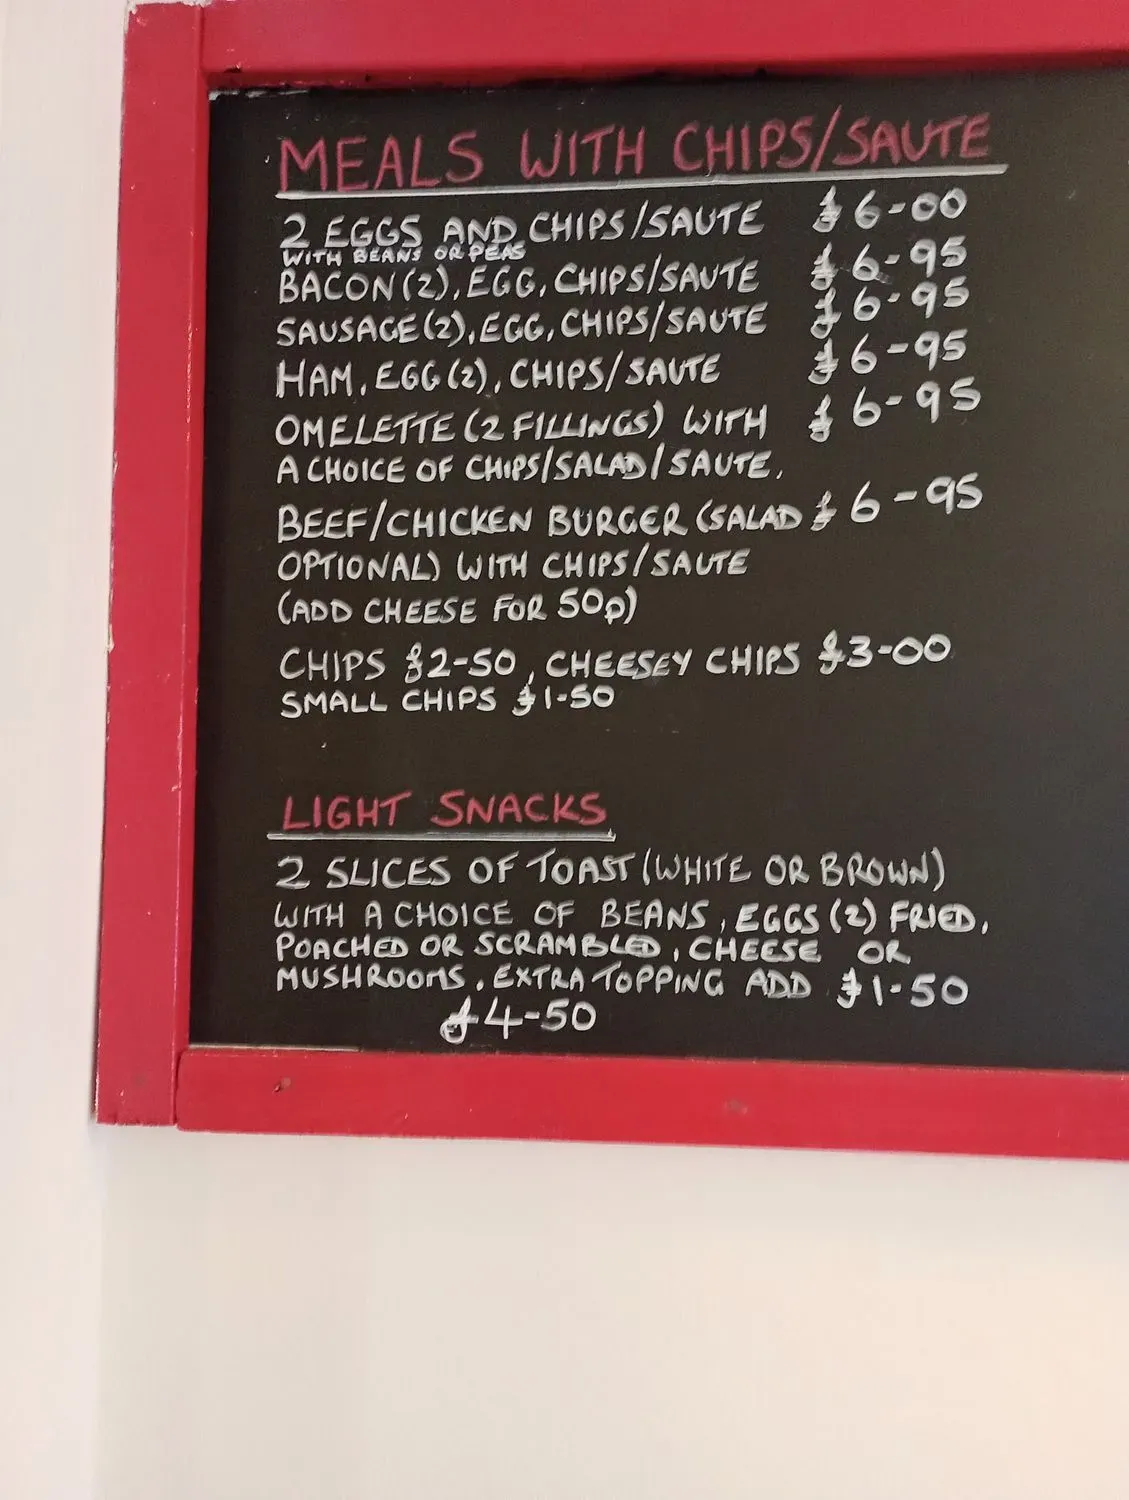 MEALS WITH CHIPS/SAUTE
2 EGGS AND CHIPS/SAUTE £6-00
WITH BEANS OR PEAS
BACON(2), EGG, CHIPS/SAUTE £6-95
SAUSAGE(2), EGG, CHIPS/SAUTE £6-95
HAM, EGG(2), CHIPS/SAUTE £6-95
OMELETTE (2 FILLINGS) WITH £6-95
A CHOICE OF CHIPS/SALAD/SAUTE.
BEEF/CHICKEN BURGER (SALAD £6-95
OPTIONAL) WITH CHIPS/SAUTE
(ADD CHEESE FOR 50p)
CHIPS £2-50, CHEESEY CHIPS £3-00
SMALL CHIPS £1-50
LIGHT SNACKS
2 SLICES OF TOAST (WHITE OR BROWN)
WITH A CHOICE OF BEANS, EGGS(2) FRIED,
POACHED OR SCRAMBLED, CHEESE OR
MUSHROOMS. EXTRA TOPPING ADD £1-50
£4-50